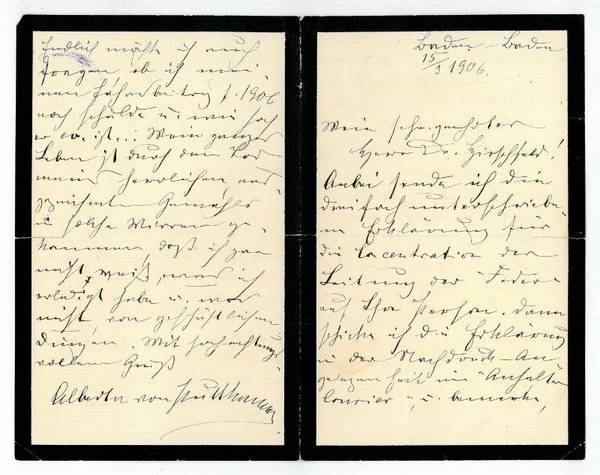 Baden-Baden
15/3 1906.
Mein sehr geehrter
Herr Dr. Hirschfeld!
Anbei sende ich die
dreifach unterschriebe-
ne Erklärung für
die Concentration der
Leitung der "Feder"
auf Ihre Person. Dann
schicke ich die Erklärung
in der Nachdruck-An-
gelegenheit im "Anhalter
Courier", u. bemerke,
Endlich möchte ich auch
fragen ob ich mei-
nen Jahresbeitrag p. 1906
noch schulde u. wie hoch
er ev. ist... Mein ganzes
Leben ist durch den Tod
meines herrlichen, aus-
gezeichneten Gemahls
in solche Wirren ge-
kommen, daß ich gar
nicht weiß, was ich
erledigt habe u. was
nicht, von geschäftlichen
Dingen. Mit hochachtungs-
vollem Gruß
Alberta von Puttkamer